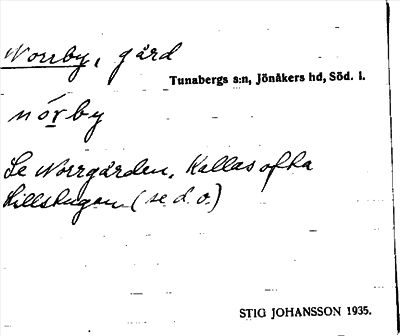 Norrby, gård
Tunabergs s:n, Jönåkers hd, Söd. l.
nórby
Se Norrgården. Kallas ofta
Hillstugan (se d. o.)
STIG JOHANSSON 1935.